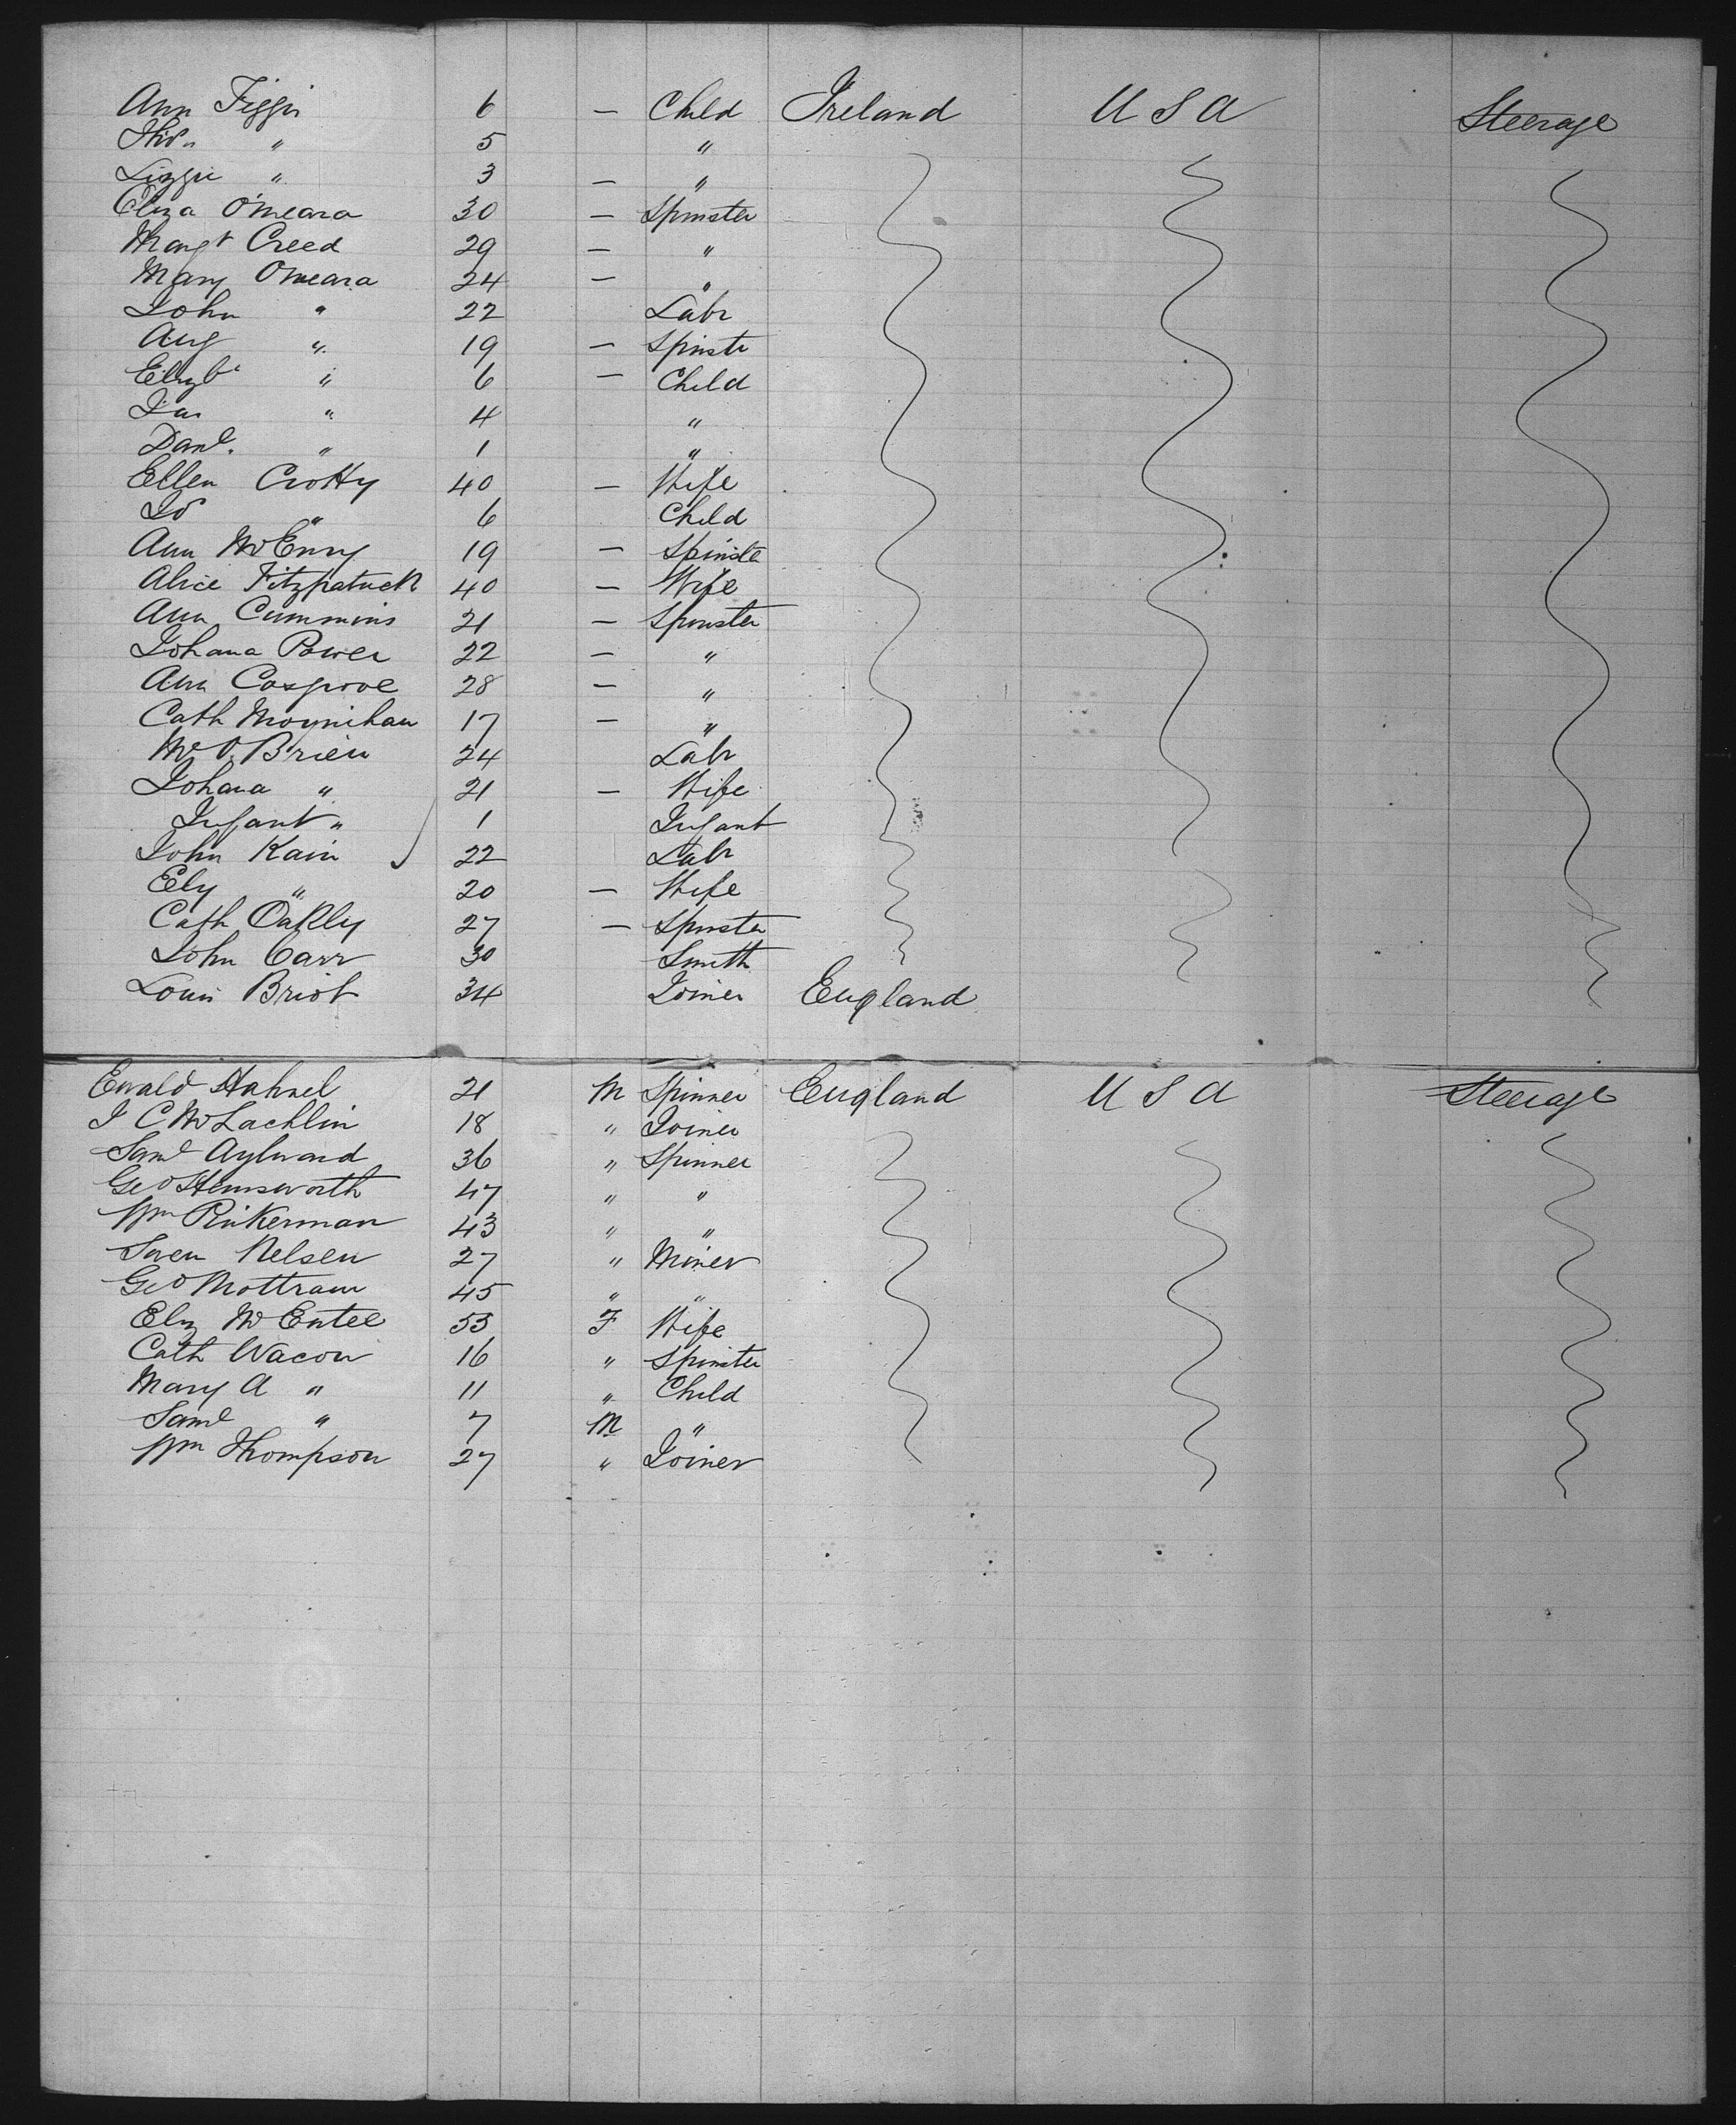 Ann Figgis 6 — Child Ireland U S A Steerage
Thos " 5 "
Lizzie " 3 — "
Eliza O'Meara 30 — Spinster
Margt Creed 29 — "
Mary OMeara 24 — "
John " 22 Labr
" 19 — Spinstr
Elizb " 6 — Child
Jas " 4 "
Danl. " 1 "
Ellen Crotty 40 — Wife
Jo " 6 Child
Ann McEnry 19 — Spinster
Alice Fitzpatrick 40 — Wife
Ann Cummins 21 — Spinster
Johana Power 22 — "
Ann Cosgrove 28 — "
Cath Moynihan 17 — "
O'Brien 24 Labr
Johana " 21 — Wife
Infant " 1 Infant
John Kain 22 Labr
Ely " 20 — Wife
Cath Oakley 27 — Spinster
John Carr 30 Smith
Louis Briot 34 Joiner England
Ewald Hahnel 21 M Spinner England U S A Steerage
J C McLachlin 18 " Joiner
Saml Aylward 36 " Spinner
Geo Hemsworth 47 " "
Wm Pinkerman 43 " "
Sven Nelsen 27 " Miner
Geo Mottram 45 " "
Elz McEntee 55 F Wife
Cath Wacon 16 " Spinster
Mary A " 11 " Child
Saml " 7 M "
Wm Thompson 27 " Joiner